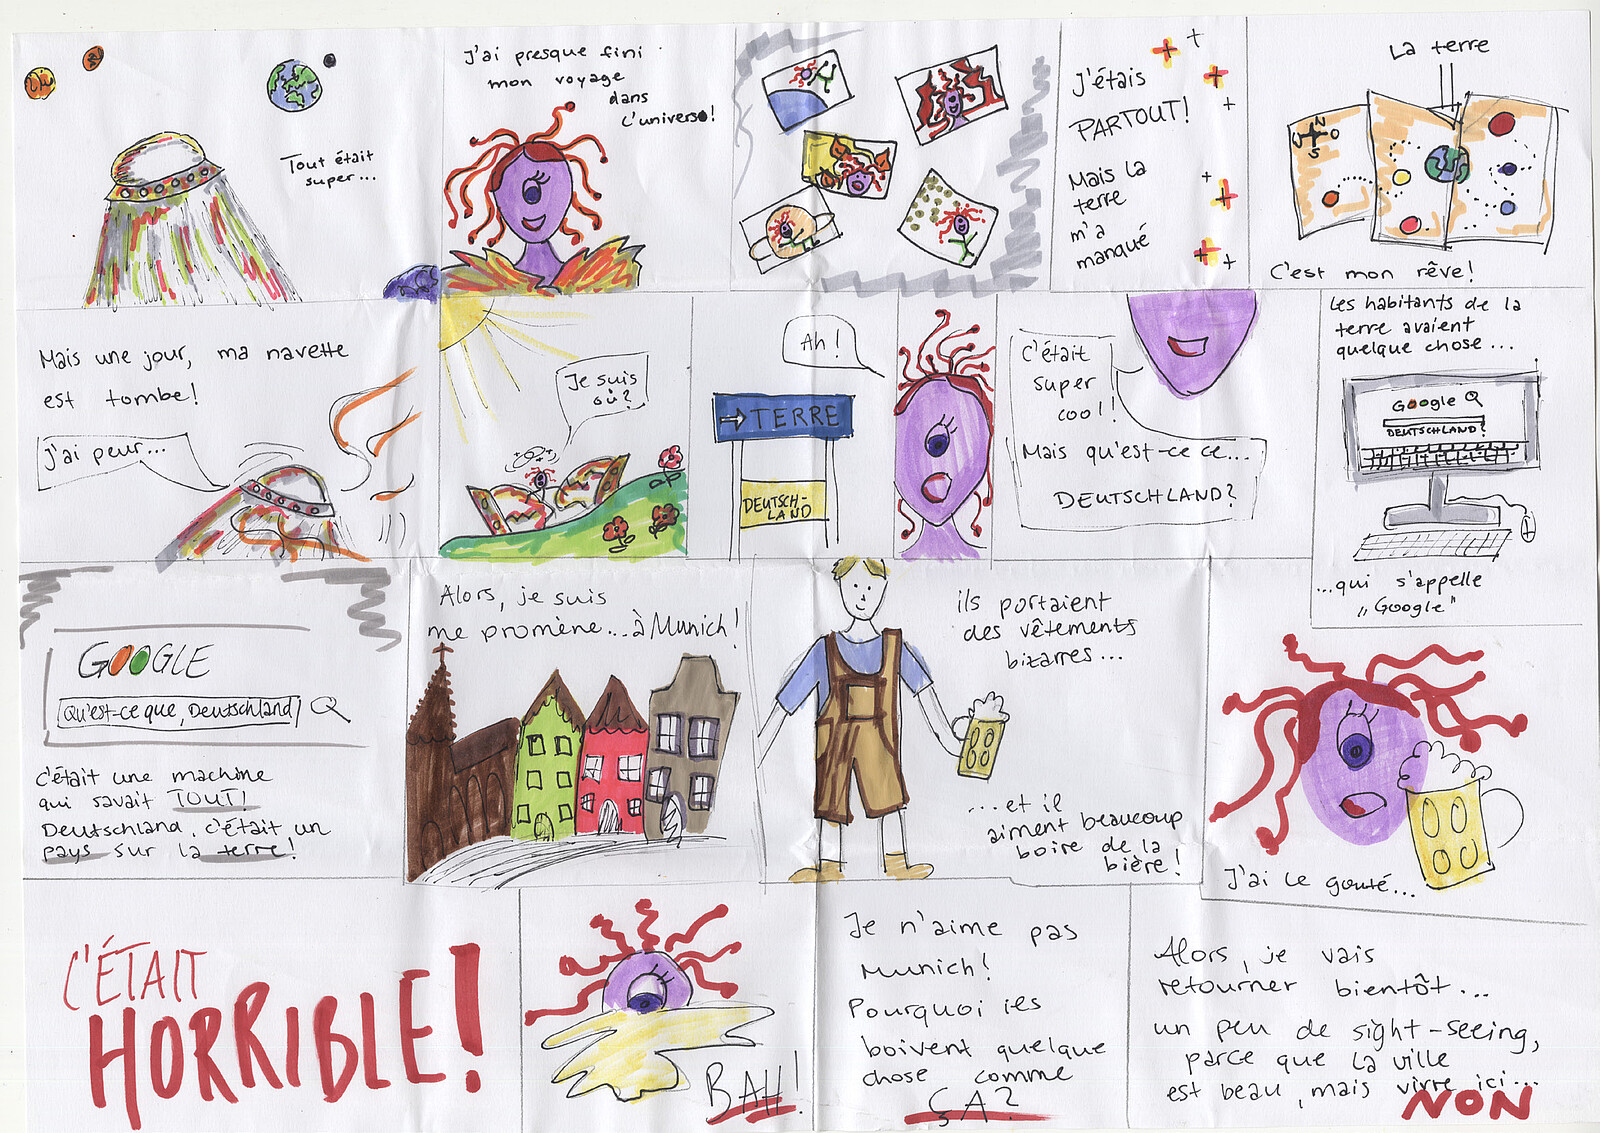 Tout était
super...
J'ai presque fini
mon voyage
dans
l'univers!
J'étais
PARTOUT!
Mais la
terre
m'a
manqué
La terre
N
S
C'est mon rêve!
Mais une jour, ma navette
est tombe!
J'ai peur...
Je suis
où?
Ah!
→ TERRE
DEUTSCH-
LAND
C'était
super
cool!
Mais qu'est-ce ce...
DEUTSCHLAND?
Les habitants de la
terre avaient
quelque chose...
Google
DEUTSCHLAND?
...qui s'appelle
„Google"
GOOGLE
Qu'est-ce que, Deutschland
c'était une machine
qui savait TOUT!
Deutschland, c'était un
pays sur la terre!
Alors, je suis
me promène...à Munich!
ils portaient
des vêtements
bizarres...
...et il
aiment beaucoup
boire de la
bière!
J'ai le gouté...
C'ÉTAIT
HORRIBLE!
BAH!
Je n'aime pas
Munich!
Pourquoi ils
boivent quelque
chose comme
ÇA?
Alors, je vais
retourner bientôt...
un peu de sight-seeing,
parce que la ville
est beau, mais vivre ici...
NON